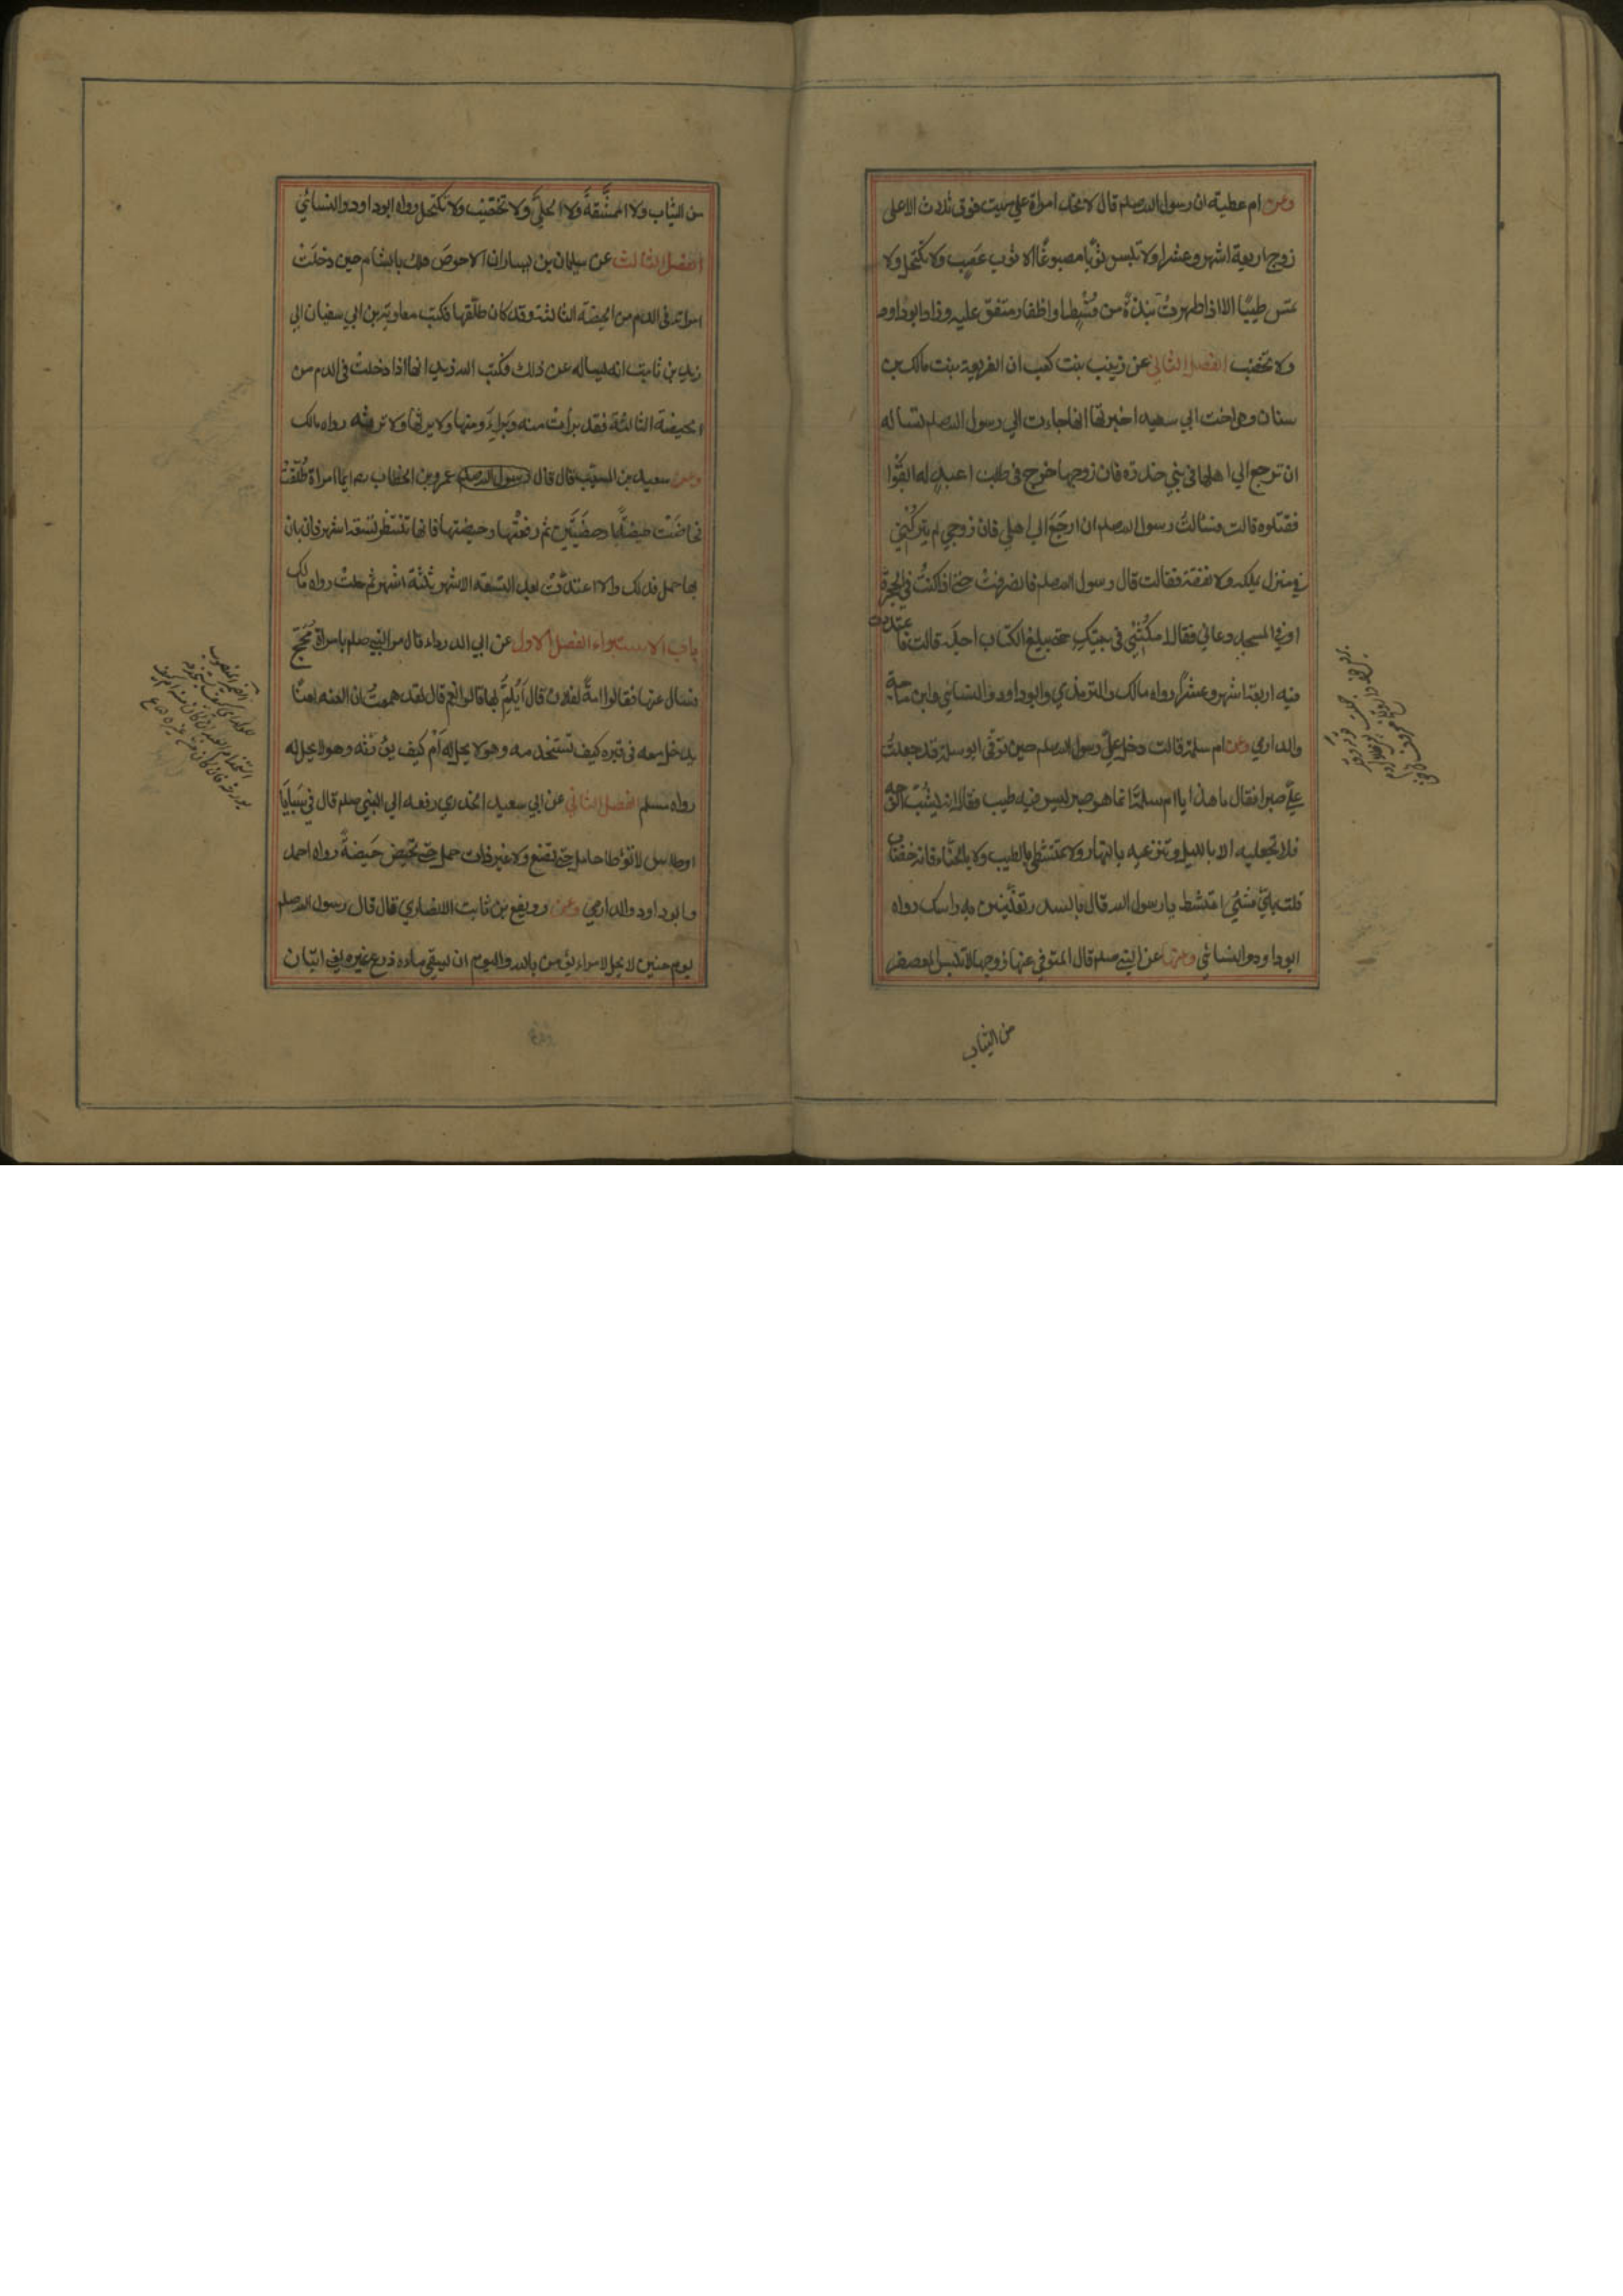 وعن ام عطية ان رسول الله صلعم قال لا تحد امراة علي ميت فوق ثلاث الا على
زوج اربعة اشهر وعشرا ولا تلبس ثوبًا مصبوغًا الا ثوب عصب ولا تكتحل ولا
تمس طيبًا الا اذا طهرت نبذةً من قسط او اظفار متفق عليه وزاد ابوداود
ولا تختضب الفصل الثاني عن زينب بنت كعب ان الفريعة بنت مالك بن
سنان وهي اخت ابي سعيد اخبرتها انها جاءت الي رسول الله صلعم تساله
ان ترجع الي اهلها في بني خدرة فان زوجها خرج في طلب اعبد له ابقوا
فقتلوه قالت فسالت رسول الله صلعم ان ارجع الي اهلي فان زوجي لم يتركني
في منزل يملكه ولا نفقة فقالت قال رسول الله صلعم نعم فانصرفت حتي اذا كنت في الحجرة
او في المسجد دعاني فقال امكثي في بيتك حتي يبلغ الكتاب اجله قالت فاعتددت
فيه اربعة اشهر وعشرًا رواه مالك والترمذي وابوداود والنسائي وابن ماجة
والدارمي وعن ام سلمة قالت دخل علي رسول الله صلعم حين توفي ابو سلمة وقد جعلت
علي صبرا فقال ما هذا يا ام سلمة انما هو صبر ليس فيه طيب فقال انه يشب الوجه
فلا تجعليه الا بالليل وتنزعيه بالنهار ولا تمتشطي بالطيب ولا بالحناء فانه خضاب
قلت باي شيئ امتشط يا رسول الله قال بالسدر تغلفين به راسك رواه
ابوداود والنسائي وعنها عن النبي صلعم قال المتوفي عنها زوجها لا تلبس المعصفر
من الثياب
من الثياب ولا الممشقة ولا الحلي ولا تختضب ولا تكتحل رواه ابوداود والنسائي
الفصل الثالث عن سليمان بن يسار ان الاحوص هلك بالشام حين دخلت
امراته في الدم من الحيضة الثالثة وقد كان طلقها فكتب معاوية بن ابي سفيان الي
زيد بن ثابت انه يساله عن ذلك فكتب اليه زيد انها اذا دخلت في الدم من
الحيضة الثالثة فقد برأت منه وبرئ منها ولا يرثها ولا ترثه رواه مالك
وعن سعيد بن المسيب قال قال رسول الله صلعم عمرو بن الخطاب رض ايما امراة طلقت
فحاضت حيضة او حيضتين ثم رفعتها حيضتها فانها تنتظر تسعة اشهر فان بان
بها حمل فذلك والا اعتدت بعد التسعة الاشهر ثلثة اشهر ثم حلت رواه مالك
باب الاستبراء الفصل الاول عن ابي الدرداء قال مر النبي صلعم بامراة مجح
فسال عنها فقالوا امة لفلان قال ايلم بها قالوا نعم قال لقد هممت ان العنه لعنًا
يدخل معه في قبره كيف يستخدمه وهو لا يحل له ام كيف يورثه وهو لا يحل له
رواه مسلم الفصل الثاني عن ابي سعيد الخدري رفعه الي النبي صلعم قال في سبايا
اوطاس لا توطا حامل حتي تضع ولا غير ذات حمل حتي تحيض حيضة رواه احمد
وابوداود والدارمي وعن رويفع بن ثابت الانصاري قال قال رسول الله صلعم
يوم حنين لا يحل لامرء يؤمن بالله واليوم ان يسقي ماءه زرع غيره يعني اتيان